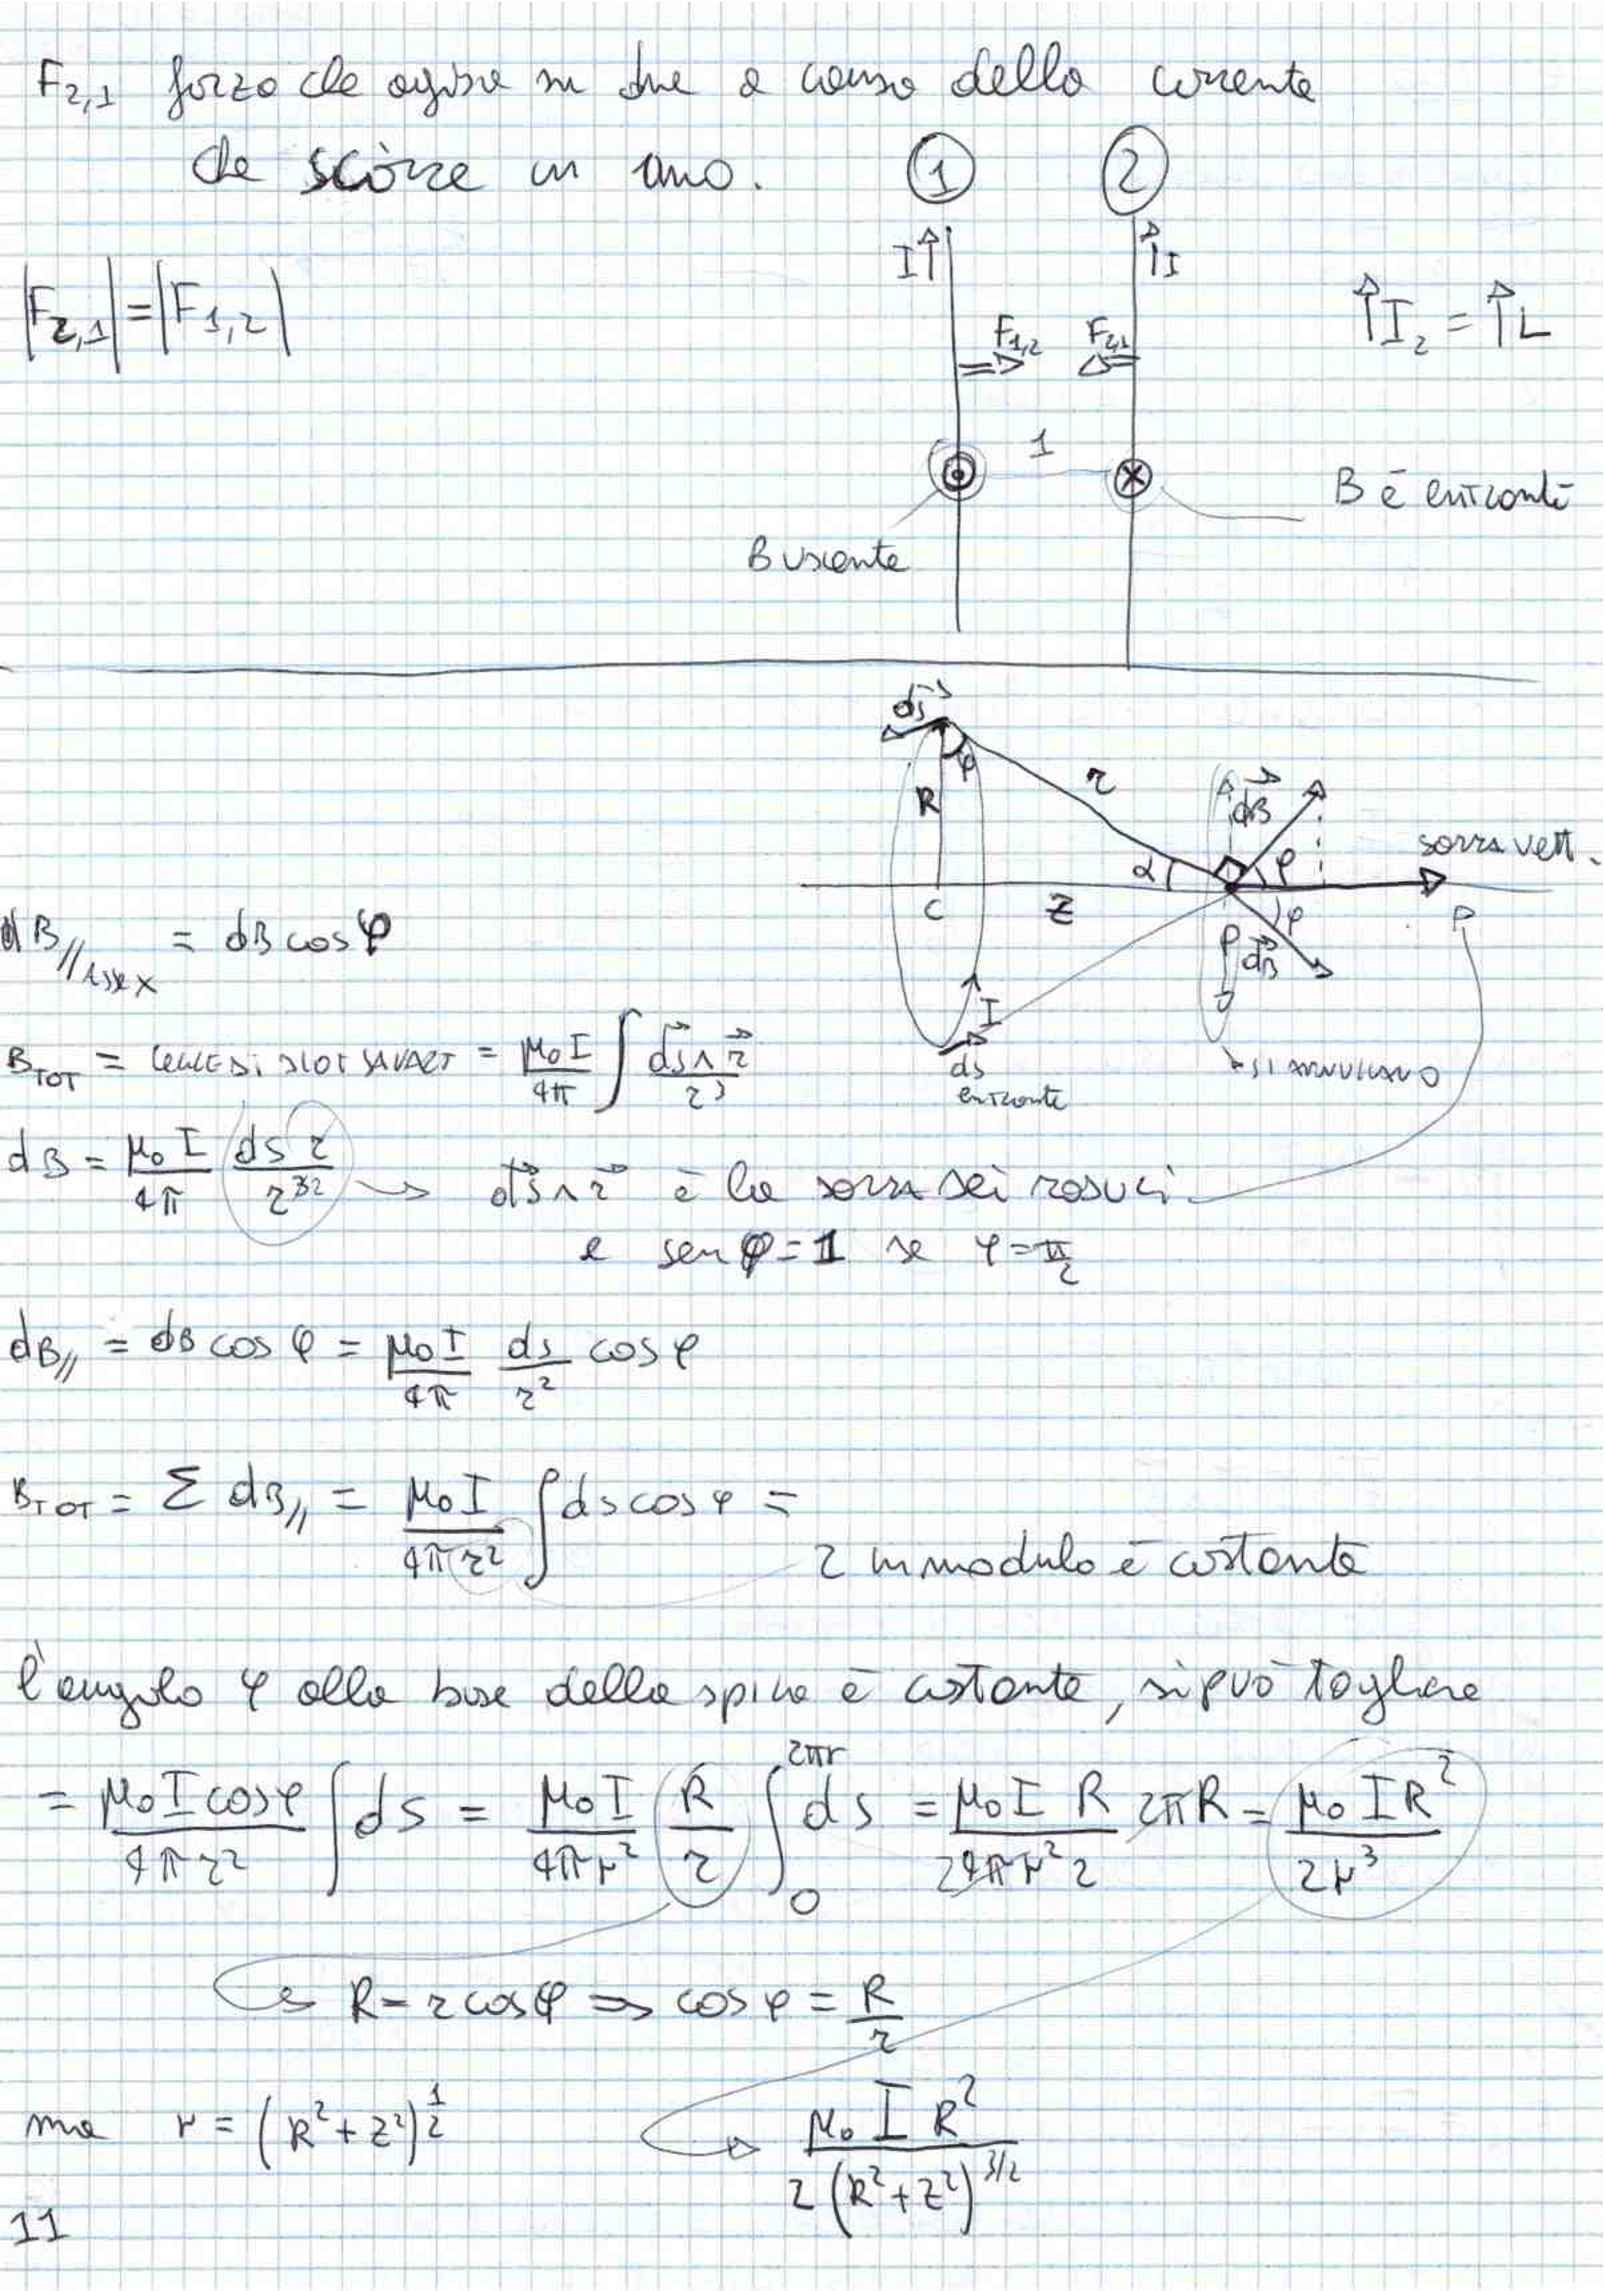 F₂,₁ forza che agisce su due a causa della corrente
che scorre in uno.
① ②
I↑ ↑I
|F₂,₁| = |F₁,₂|
F₁,₂ F₂,₁
↑I₂ = ↑L
1
B è entrante
B uscente
ds
φ
R
r
dB
somma vett.
α
φ
C
Z
φ
P
P
dB
dB// asse x = dB cos φ
I
ds
entrante
si annullano
B_TOT = legge di Biot Savart = μ₀I/4π ∫ ds∧r/r³
dB = μ₀I/4π ds r/r³² → ds∧r è la somma dei
e sen φ = 1 se φ = π/2
dB// = dB cos φ = μ₀I/4π ds/r² cos φ
B_TOT = Σ dB// = μ₀I/4πr² ∫ ds cos φ =
r in modulo è costante
l'angolo φ alla base della spira è costante, si può togliere
= μ₀I cos φ/4πr² ∫ ds = μ₀I/4πr² R/r ∫₀^2πr ds = μ₀I R/24πr² r 2πR = μ₀IR²/2r³
R = r cos φ ⇒ cos φ = R/r
ma r = (R² + Z²)^1/2
μ₀ I R²/2(R² + Z²)^3/2
11